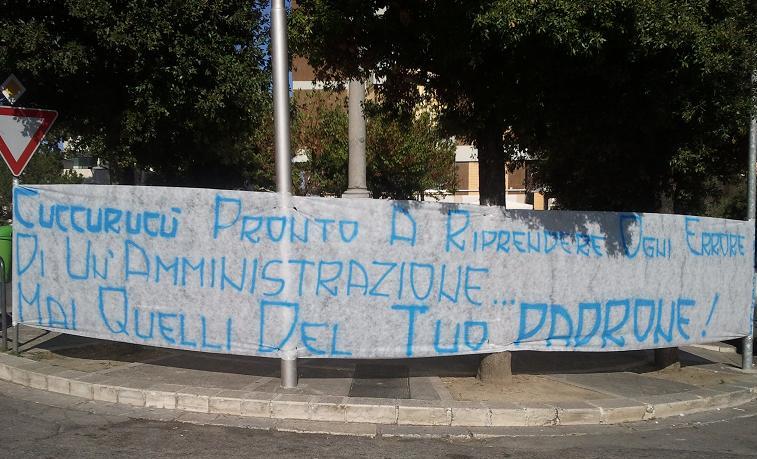 CUCCURUCÙ PRONTO A RIPRENDERE OGNI ERRORE
DI UN'AMMINISTRAZIONE...
MAI QUELLI DEL TUO PADRONE!